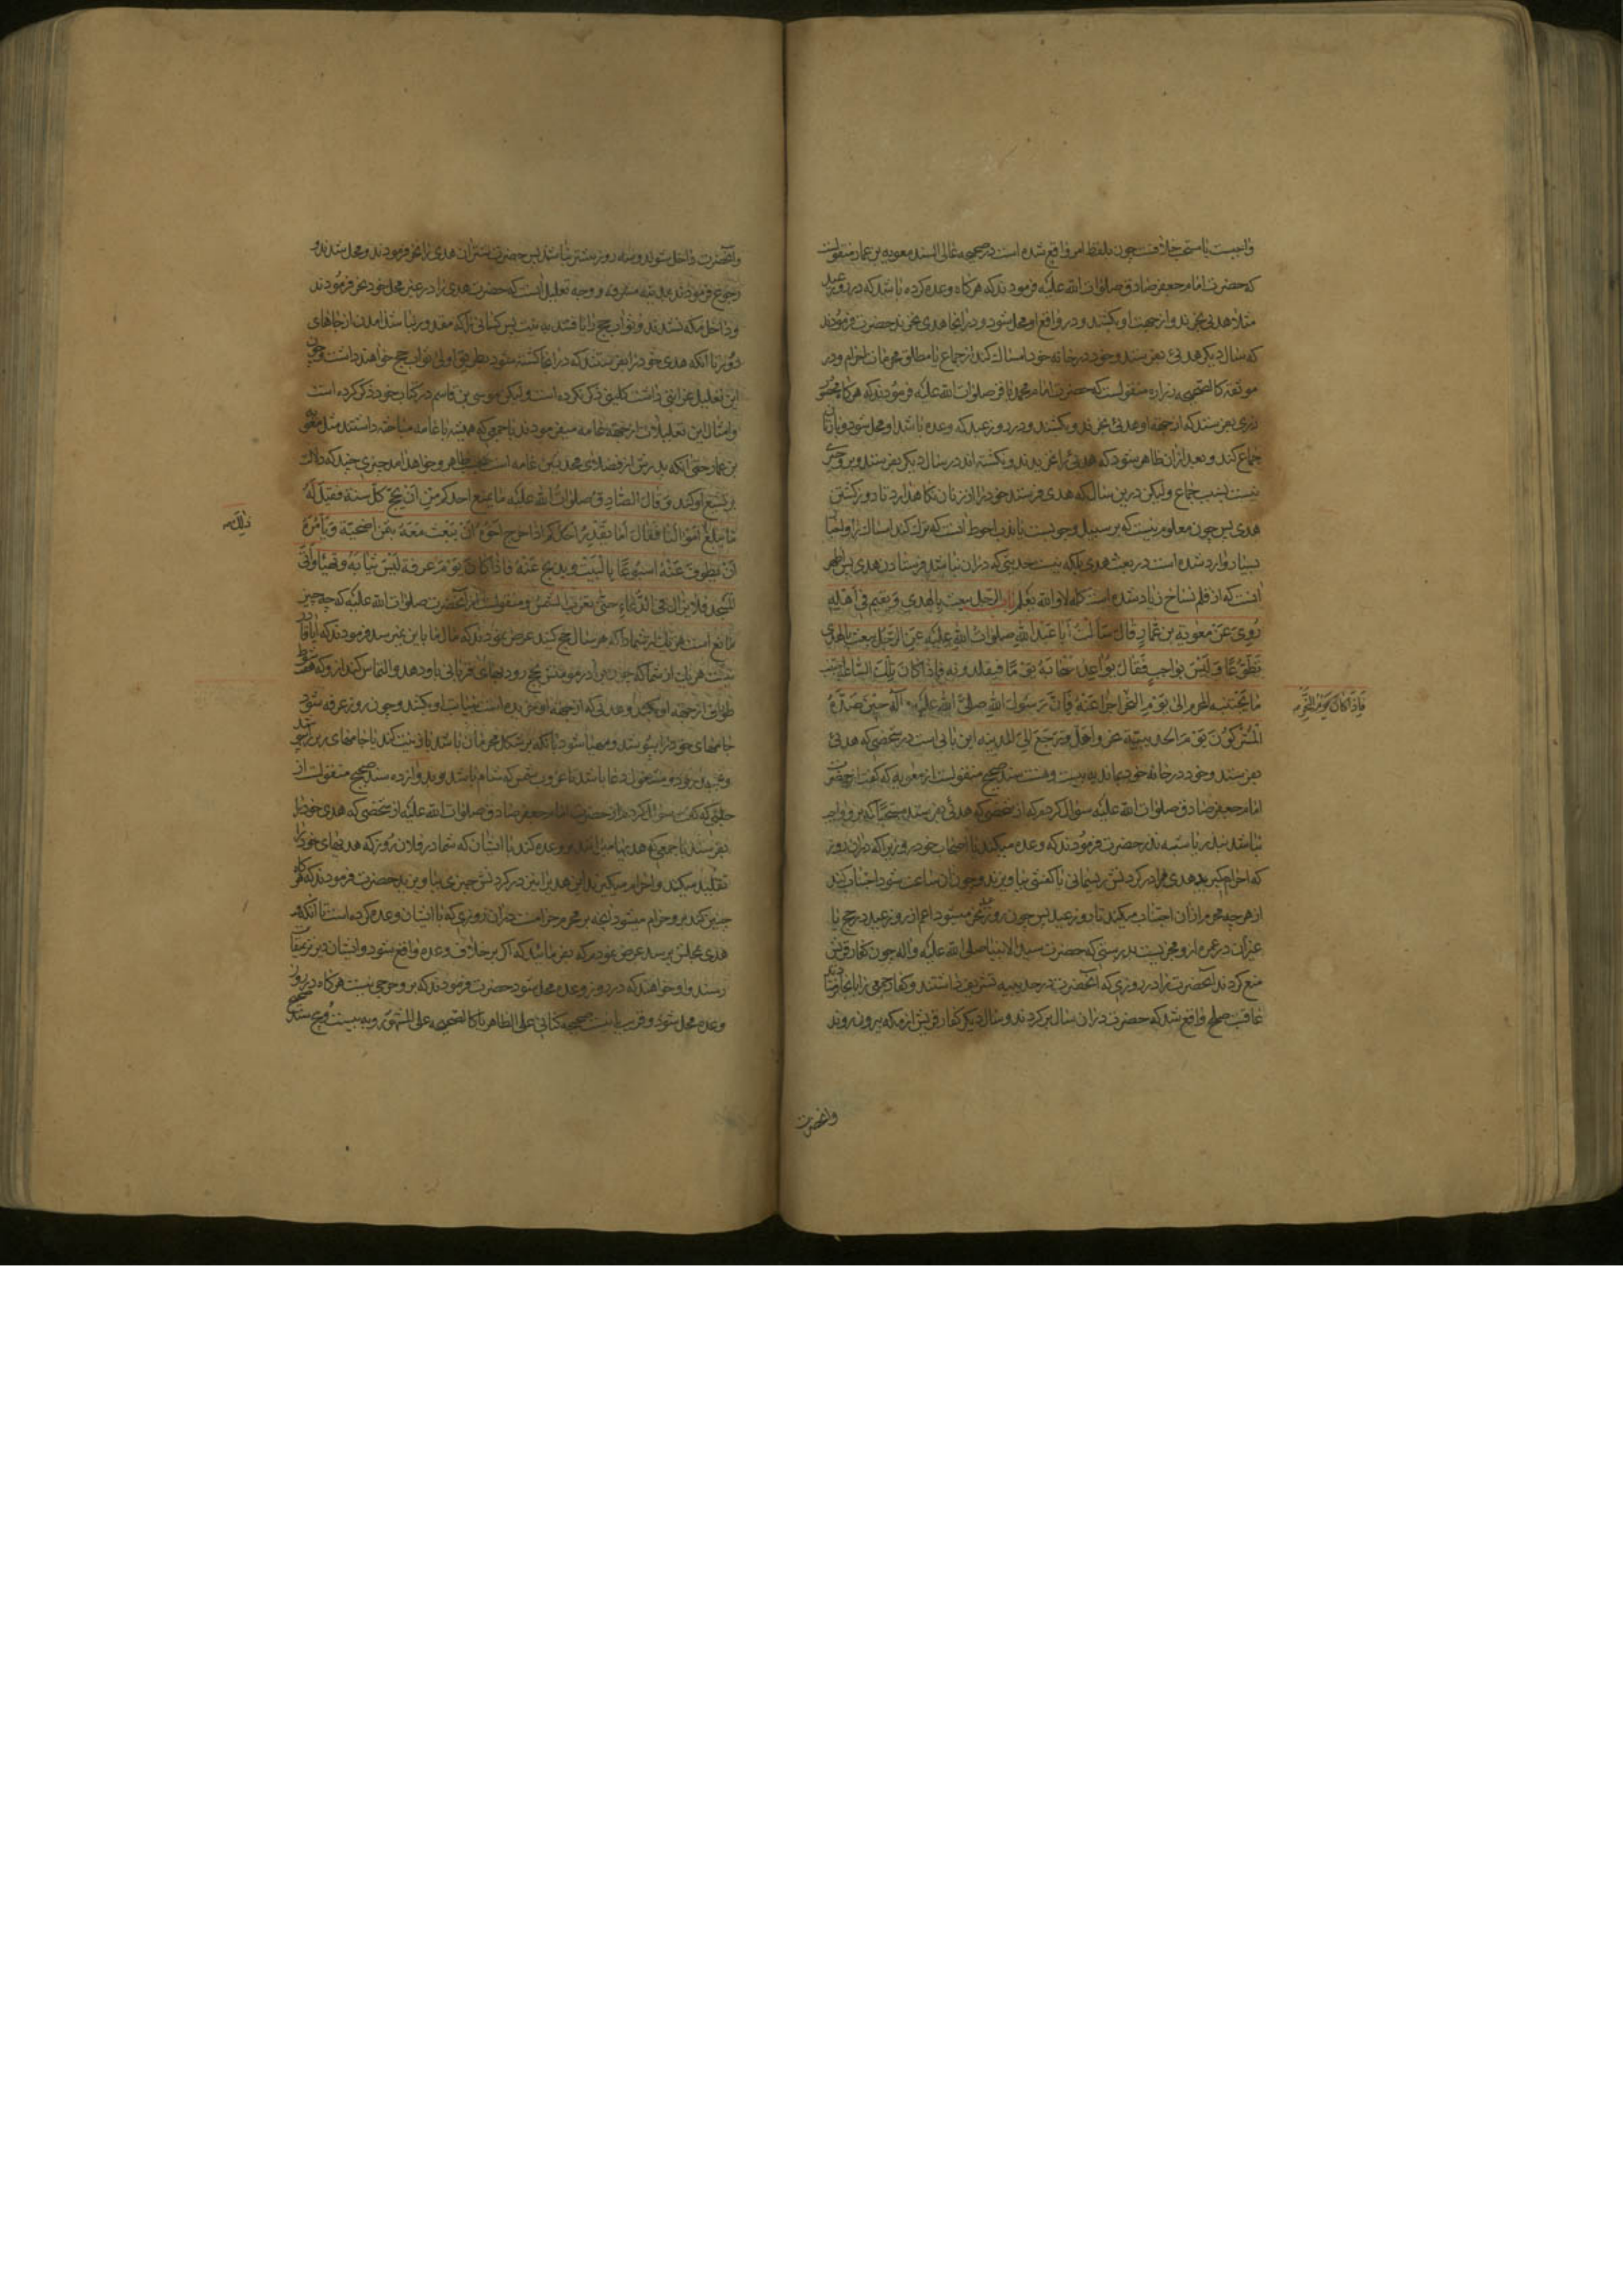 واجبست یا مستحب خلافست چون بلفظ امر واقع شده است در صحیحه عالی السند معویه بن عمار منقولست
که حضرت امام جعفر صادق صلوات الله علیه فرمودند که هرگاه وعده کرده باشد که در روز عید
مثلا هدیی بخرند و از جهت او بکشند و در واقع او محل شود و در انجا هدی نخرند حضرت فرمودند
که سال دیگر هدیی بفرستد و خود در خانه خود امساک کند از جماع یا مطلق محرمات احرام و در
موثقه کالصحیحه زراره منقولست که حضرت امام محمد باقر صلوات الله علیه فرمودند که هرگاه محصور
زری بفرستد که از جهة او هدیی بخرند و بکشند و در روز عید که وعده باشد او محل شود و با زنان
جماع کند و بعد ازان ظاهر شود که هدیی را نخریدند و نکشته اند در سال دیگر بفرستد و برو چیزی
نیست بسبب جماع و لیکن درین سال که هدی فرستد خود را از زنان نگاهدارد تا روز کشتن
هدی پس چون معلوم نیست که بر سبیل وجوبست یا ندب احوط انست که ترک کند امساک را و لفظا
بسیار وارد شده است در بعث هدی بلکه نیست حدیثی که دران نباشد فرستادن هدی پس اظهر
انست که از قلم نساخ زیاد شده است کلمه لا و الله یعلم باب الرجل یبعث بالهدی و یقیم فی اهله
روی عن معویة بن عمار قال سالت ابا عبد الله صلوات الله علیه عن الرجل یبعث بالهدی
تطوعا و لیس بواجب فقال یواعد اصحابه یوما فیقلدونه فاذا کان تلک الساعة اجتنب
ما یجتنبه المحرم الی یوم النحر اجزا عنه فان رسول الله صلی الله علیه و آله حین صده
المشرکون یوم الحدیبیة نحر و احل و رجع الی المدینه این بابی است در شخصی که هدیی
بفرستد و خود در خانه خود بماند به بیست و هشت سند صحیح منقولست از معویه که گفت از حضرت
امام جعفر صادق صلوات الله علیه سؤال کردم که از شخصی که هدیی بفرستد مستحبا که برو واجب
نباشد بنذر یا شبه نذر حضرت فرمودند که وعده میکند با اصحاب خود روزیرا که دران روز
که احرام گیرند هدی مرا در گردنش ریسمانی یا کفشی بیاویزند و چون ان ساعت شود اجتناب کند
از هر چه محرم ازان اجتناب میکند تا روز عید پس چون روز نحر میشود اعم از روز عید در حج یا
غیر ان در عمره ازو مجزیست بدرستی که حضرت سید الانبیا صلی الله علیه و آله چون کفار قریش
منع کردند آنحضرت را در روزی که آنحضرت در حدیبیه تشریف داشتند و کفار حرمی را بانجا فرستادند
عاقبت صلح واقع شد که حضرت دران سال برگردند و سال دیگر کفار قریش از مکه بیرون روند
فاذا کان یوم النحر
وانحضرت
وآنحضرت داخل شوند و سه روز بیشتر نباشند پس حضرت شتران هدی را نحر فرمودند و محل شدند و
رجوع فرمودند بمدینه مشرفه و وجه تعلیل انست که حضرت هدی را در غیر محل خود نحر فرمودند
و داخل مکه نشدند و ثواب حج را یافتند به نیت پس کسانی را که مقدور نباشد امدن از جاهای
دور تا انکه هدی خود را بفرستند که در انجا کشته شود بطریق اولی ثواب حج خواهند داشت و چون
این تعلیل غرابتی داشت کلینی ذکر نکرده است و لیکن موسی بن قاسم در کتاب خود ذکر کرده است
و امثال این تعلیلات از جهة عامه میفرمودند یا جمعی که همیشه با عامه مباحثه داشتند مثل معویه
بن عمار حتی انکه پدرش از فضلای محدثین عامه است و خواهد امد چیزی چند که دلالت
بر تشیع او کند و قال الصادق صلوات الله علیه ما یمنع احدکم من ان یحج کل سنة فقیل له
ما یبلغ اموالنا فقال اما یقدر احدکم اذا خرج اخوه ان یبعث معه بثمن اضحیة و یامره
ان یطوف عنه اسبوعا بالبیت و یذبح عنه فاذا کان یوم عرفة لبس ثیابه و تهیأ و اتی
المسجد فلا یزال فی الدعاء حتی تغرب الشمس و منقولست از آنحضرت صلوات الله علیه که چه چیز
مانع است هر یک از شما را که هر سال حج کنید عرض نمودند که مال ما باین نمیرسد فرمودند که ایا قادر
نیست هر یک از شما که چون برادر مومنش بحج رود بهای قربانی باو دهد و التماس کند ازو که هفت شوط
طواف از جهة او بکند و هدیی که از جهة او خریده است بنیابت او بکشد و چون روز عرفه شود
جامهای خود را بپوشد و مهیا شود
و بمسجد رود و مشغول دعا باشد تا غروب شمس که شام باشد و بدوازده سند صحیح منقولست از
حلبی که گفت سؤال کردم از حضرت امام جعفر صادق صلوات الله علیه از شخصی که هدی خود را
بفرستد با جمعی که هدیها میبرند و وعده کند با ایشان که شما در فلان روز که هدیهای خود را
تقلید میکنید و احرام میگیرند این هدی را نیز در گردنش چیزی بیاویزند حضرت فرمودند که هرگاه
چنین کند برو حرام میشود انچه بر محرم حرامست دران روزی که با ایشان وعده کرده است تا آنکه
هدی بمحلش برسد عرض نمودم که بفرمائید که اگر بر خلاف وعده واقع شود و ایشان دیرتر بمیقات
رسند و او خواهد که در روز وعده محل شود حضرت فرمودند که برو حرجی نیست هرگاه در روز
وعده محل شود و قریب باینست صحیحه کنانی علی الظاهر یا کالصحیحه علی المشهور و به بیست و پنج سند صحیح
ذلک